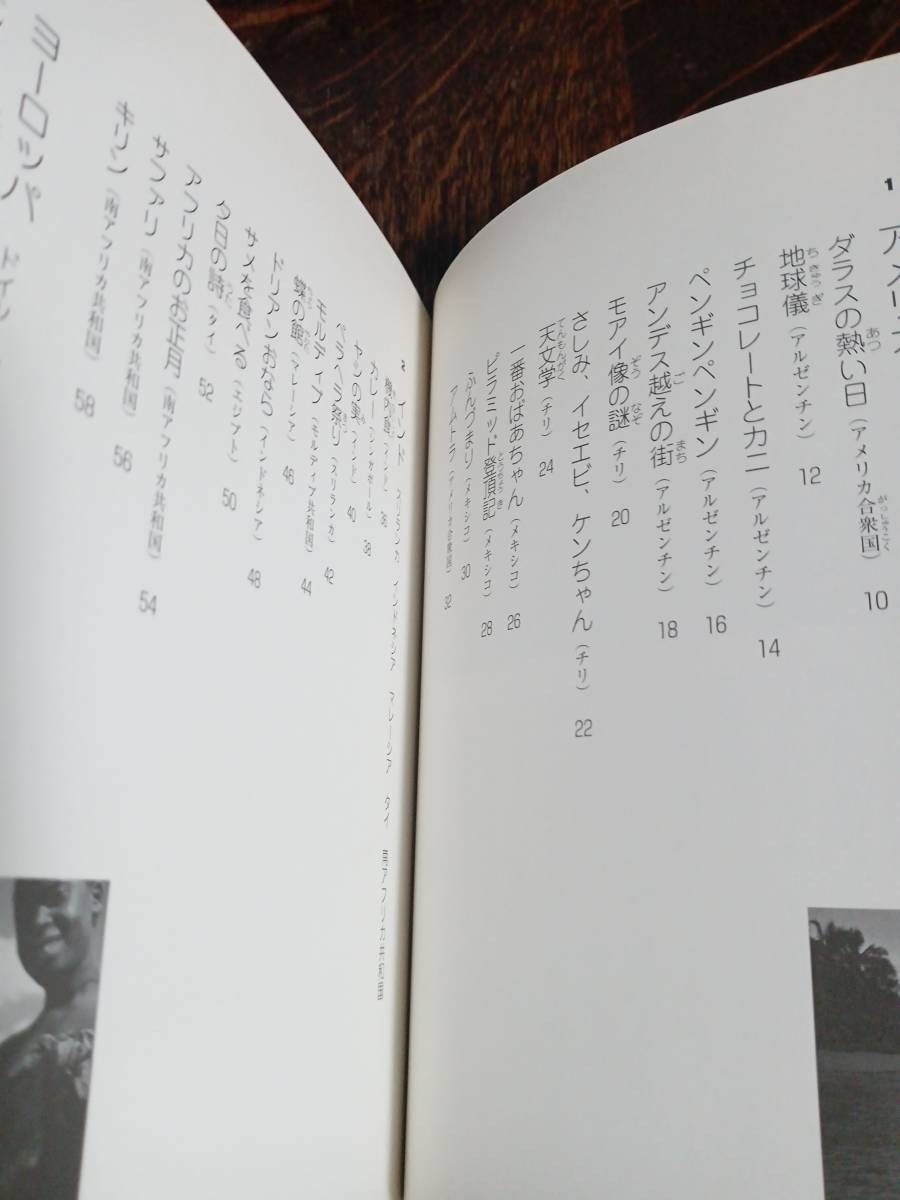 1
アメリカ
ダラスの熱い日（アメリカ合衆国） 10
地球儀（アルゼンチン） 12
チョコレートとカニ（アルゼンチン） 14
ペンギンペンギン（アルゼンチン） 16
アンデス越えの街（アルゼンチン） 18
モアイ像の謎（チリ） 20
さしみ、イセエビ、ケンちゃん（チリ） 22
天文学（チリ） 24
一番おばあちゃん（メキシコ） 26
ピラミッド登頂記（メキシコ） 28
ふんづまり（メキシコ） 30
アムトラ（アメリカ合衆国） 32
2
インド スリランカ インドネシア マレーシア タイ 南アフリカ共和国
（インド） 36
カレー（シンガポール） 38
ヤシの実（インド） 40
ペラヘラ祭り（スリランカ） 42
モルディブ（モルディブ共和国） 44
蝶の館（マレーシア） 46
ドリアンおなら（インドネシア） 48
サメを食べる（エジプト） 50
今日の詩（タイ） 52
アフリカのお正月（南アフリカ共和国） 54
サファリ（南アフリカ共和国） 56
キリン（南アフリカ共和国） 58
ヨーロッパ ドイツ